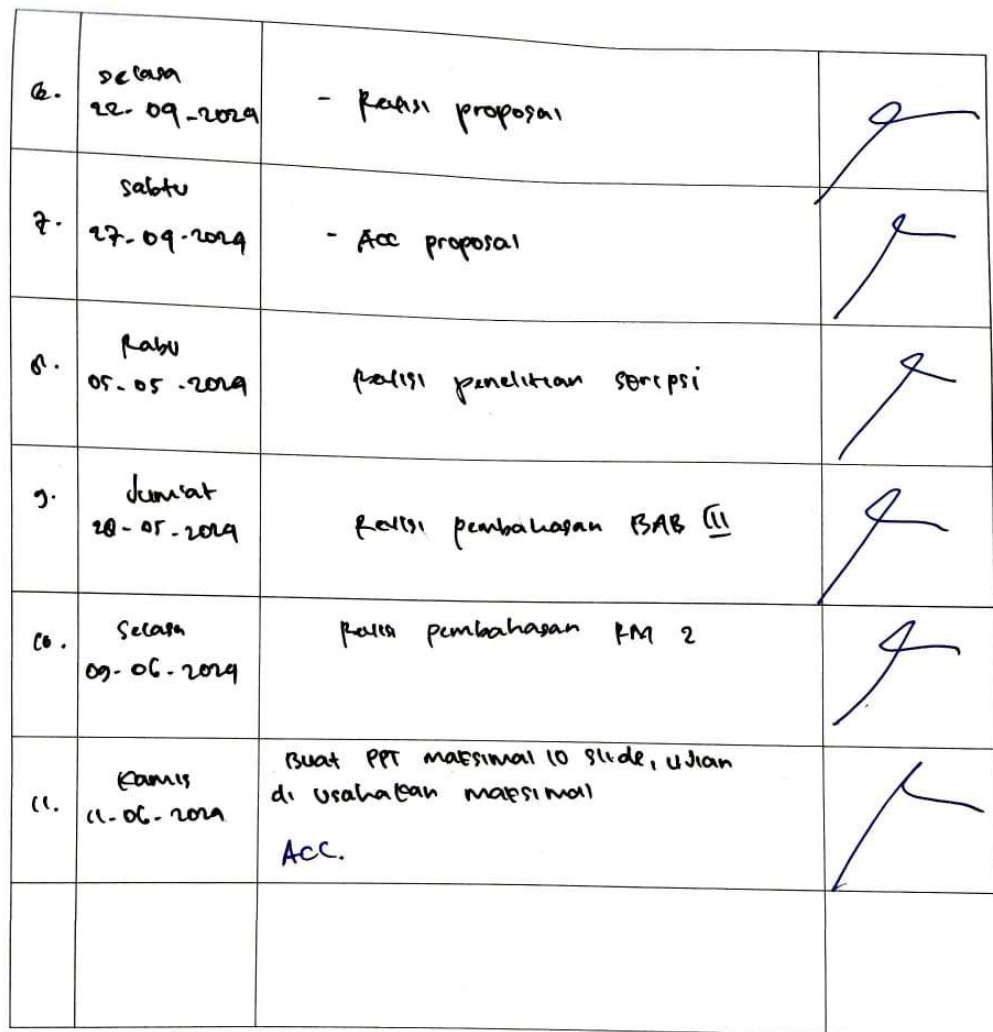 6.
Selasa
22-04-2024
- Revisi proposal
7.
Sabtu
27-04-2024
- Acc proposal
8.
Rabu
05-05-2024
Revisi penelitian skripsi
9.
Jum'at
28-05-2024
Revisi pembahasan BAB III
10.
Selasa
09-06-2024
Revisi pembahasan RM 2
11.
Kamis
11-06-2024
Buat PPT maksimal 10 slide, ujian
di usahakan maksimal
ACC.